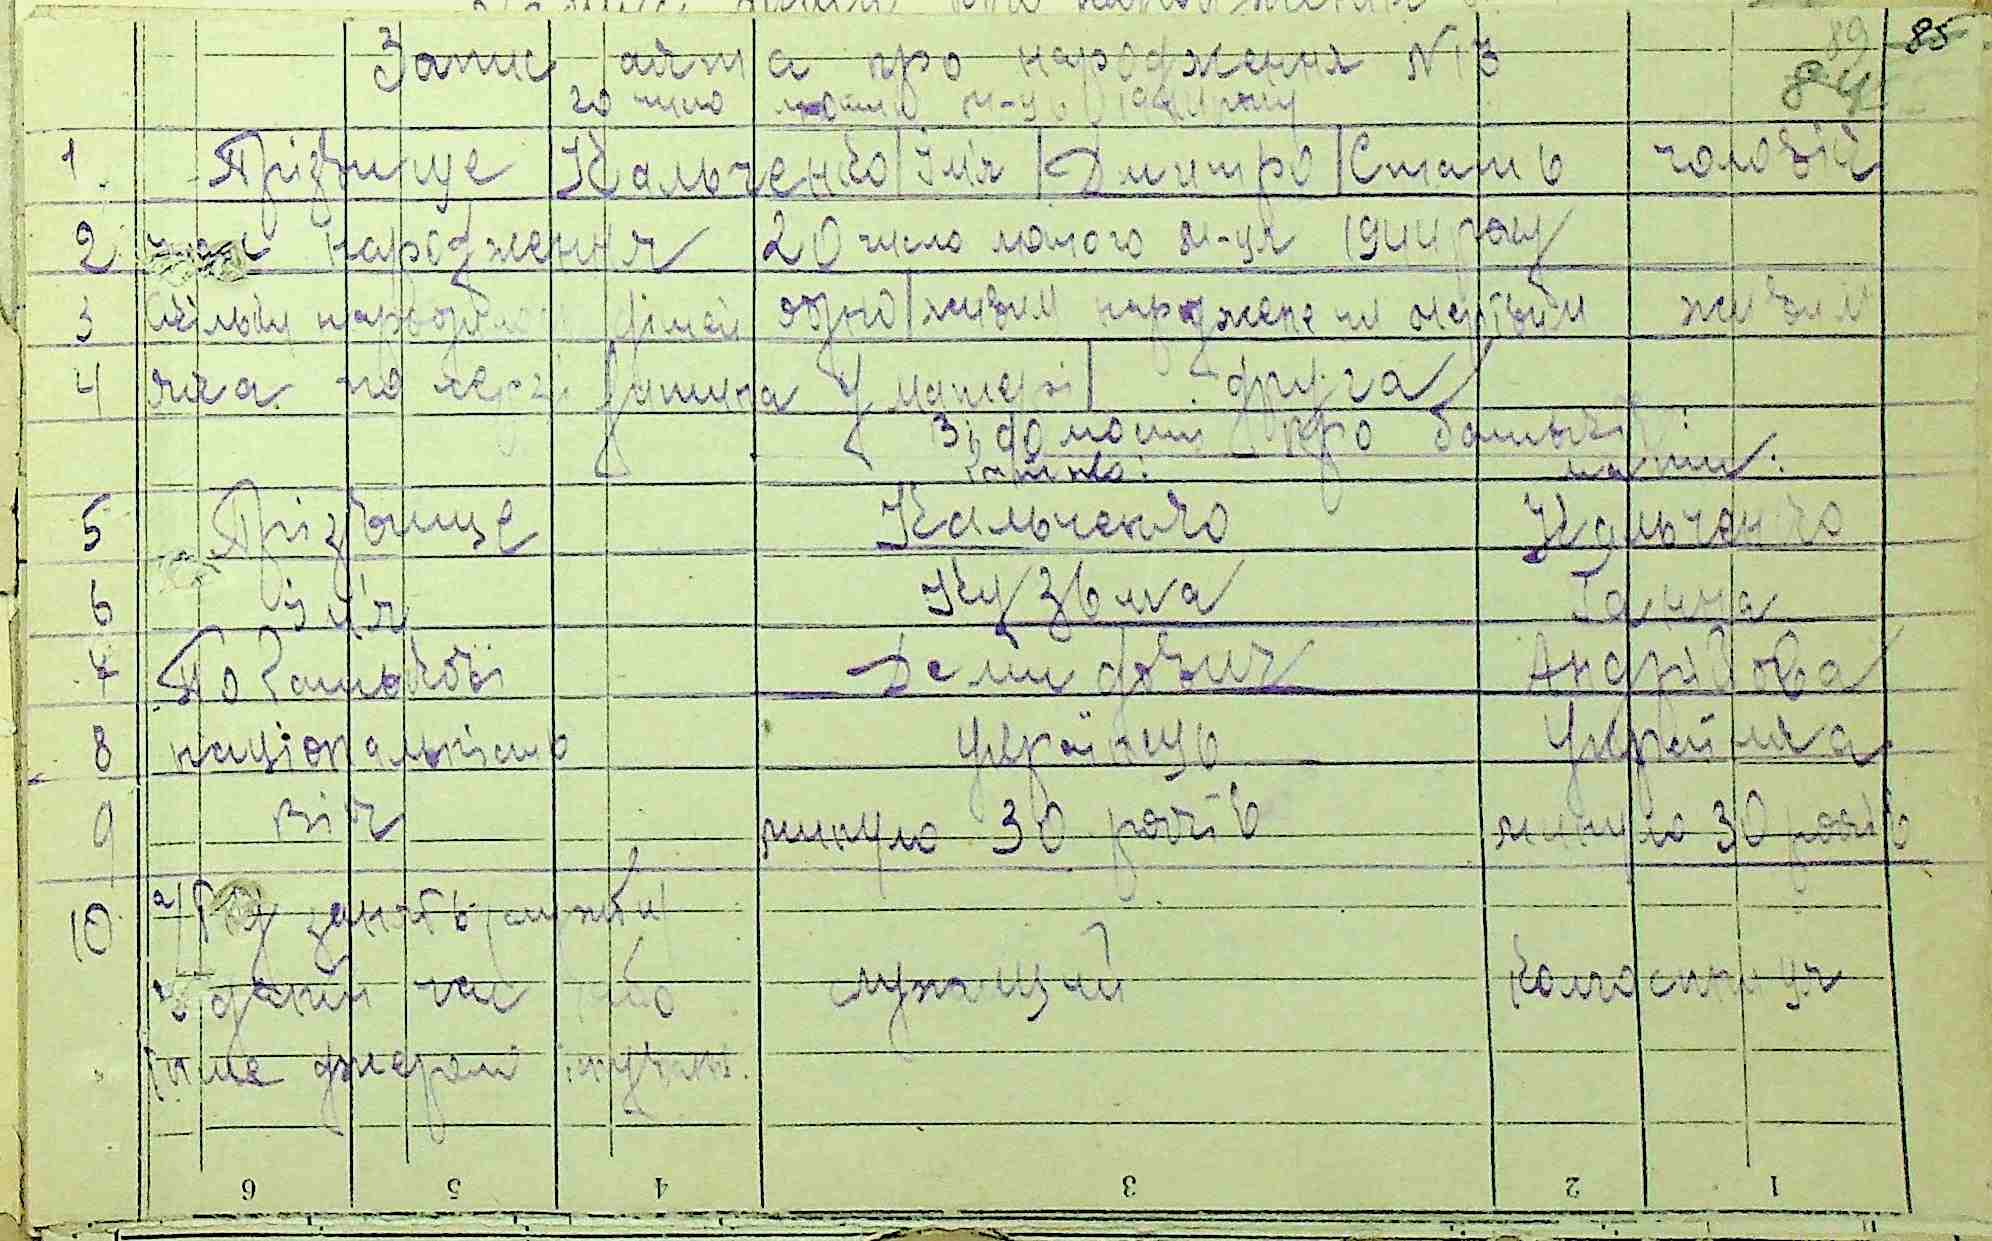 Запис акта про народження N13
20 число лютого м-ць 1944 року
89 85
84
1 Прізвище Кальченко Ім'я Дмитро Стать чоловіч
2 час народження 20 число лютого м-ця 1944 року
3 скільки народилось дітей одно живим народжене чи мертвим живим
4 яка по черзі дитина у матері друга
Відомости про батьків:
батько: мати:
5 Прізвище Кальченко Кальченко
6 Ім'я Кузьма Ганна
7 По батькові Демидович Андріївна
8 національність Українець Українка
9 Вік минуло 30 років минуло 30 років
10 а) Рід занять служби
в даний час або
інше джерело існування. служащий колгоспниця
6 5 4 3 2 1